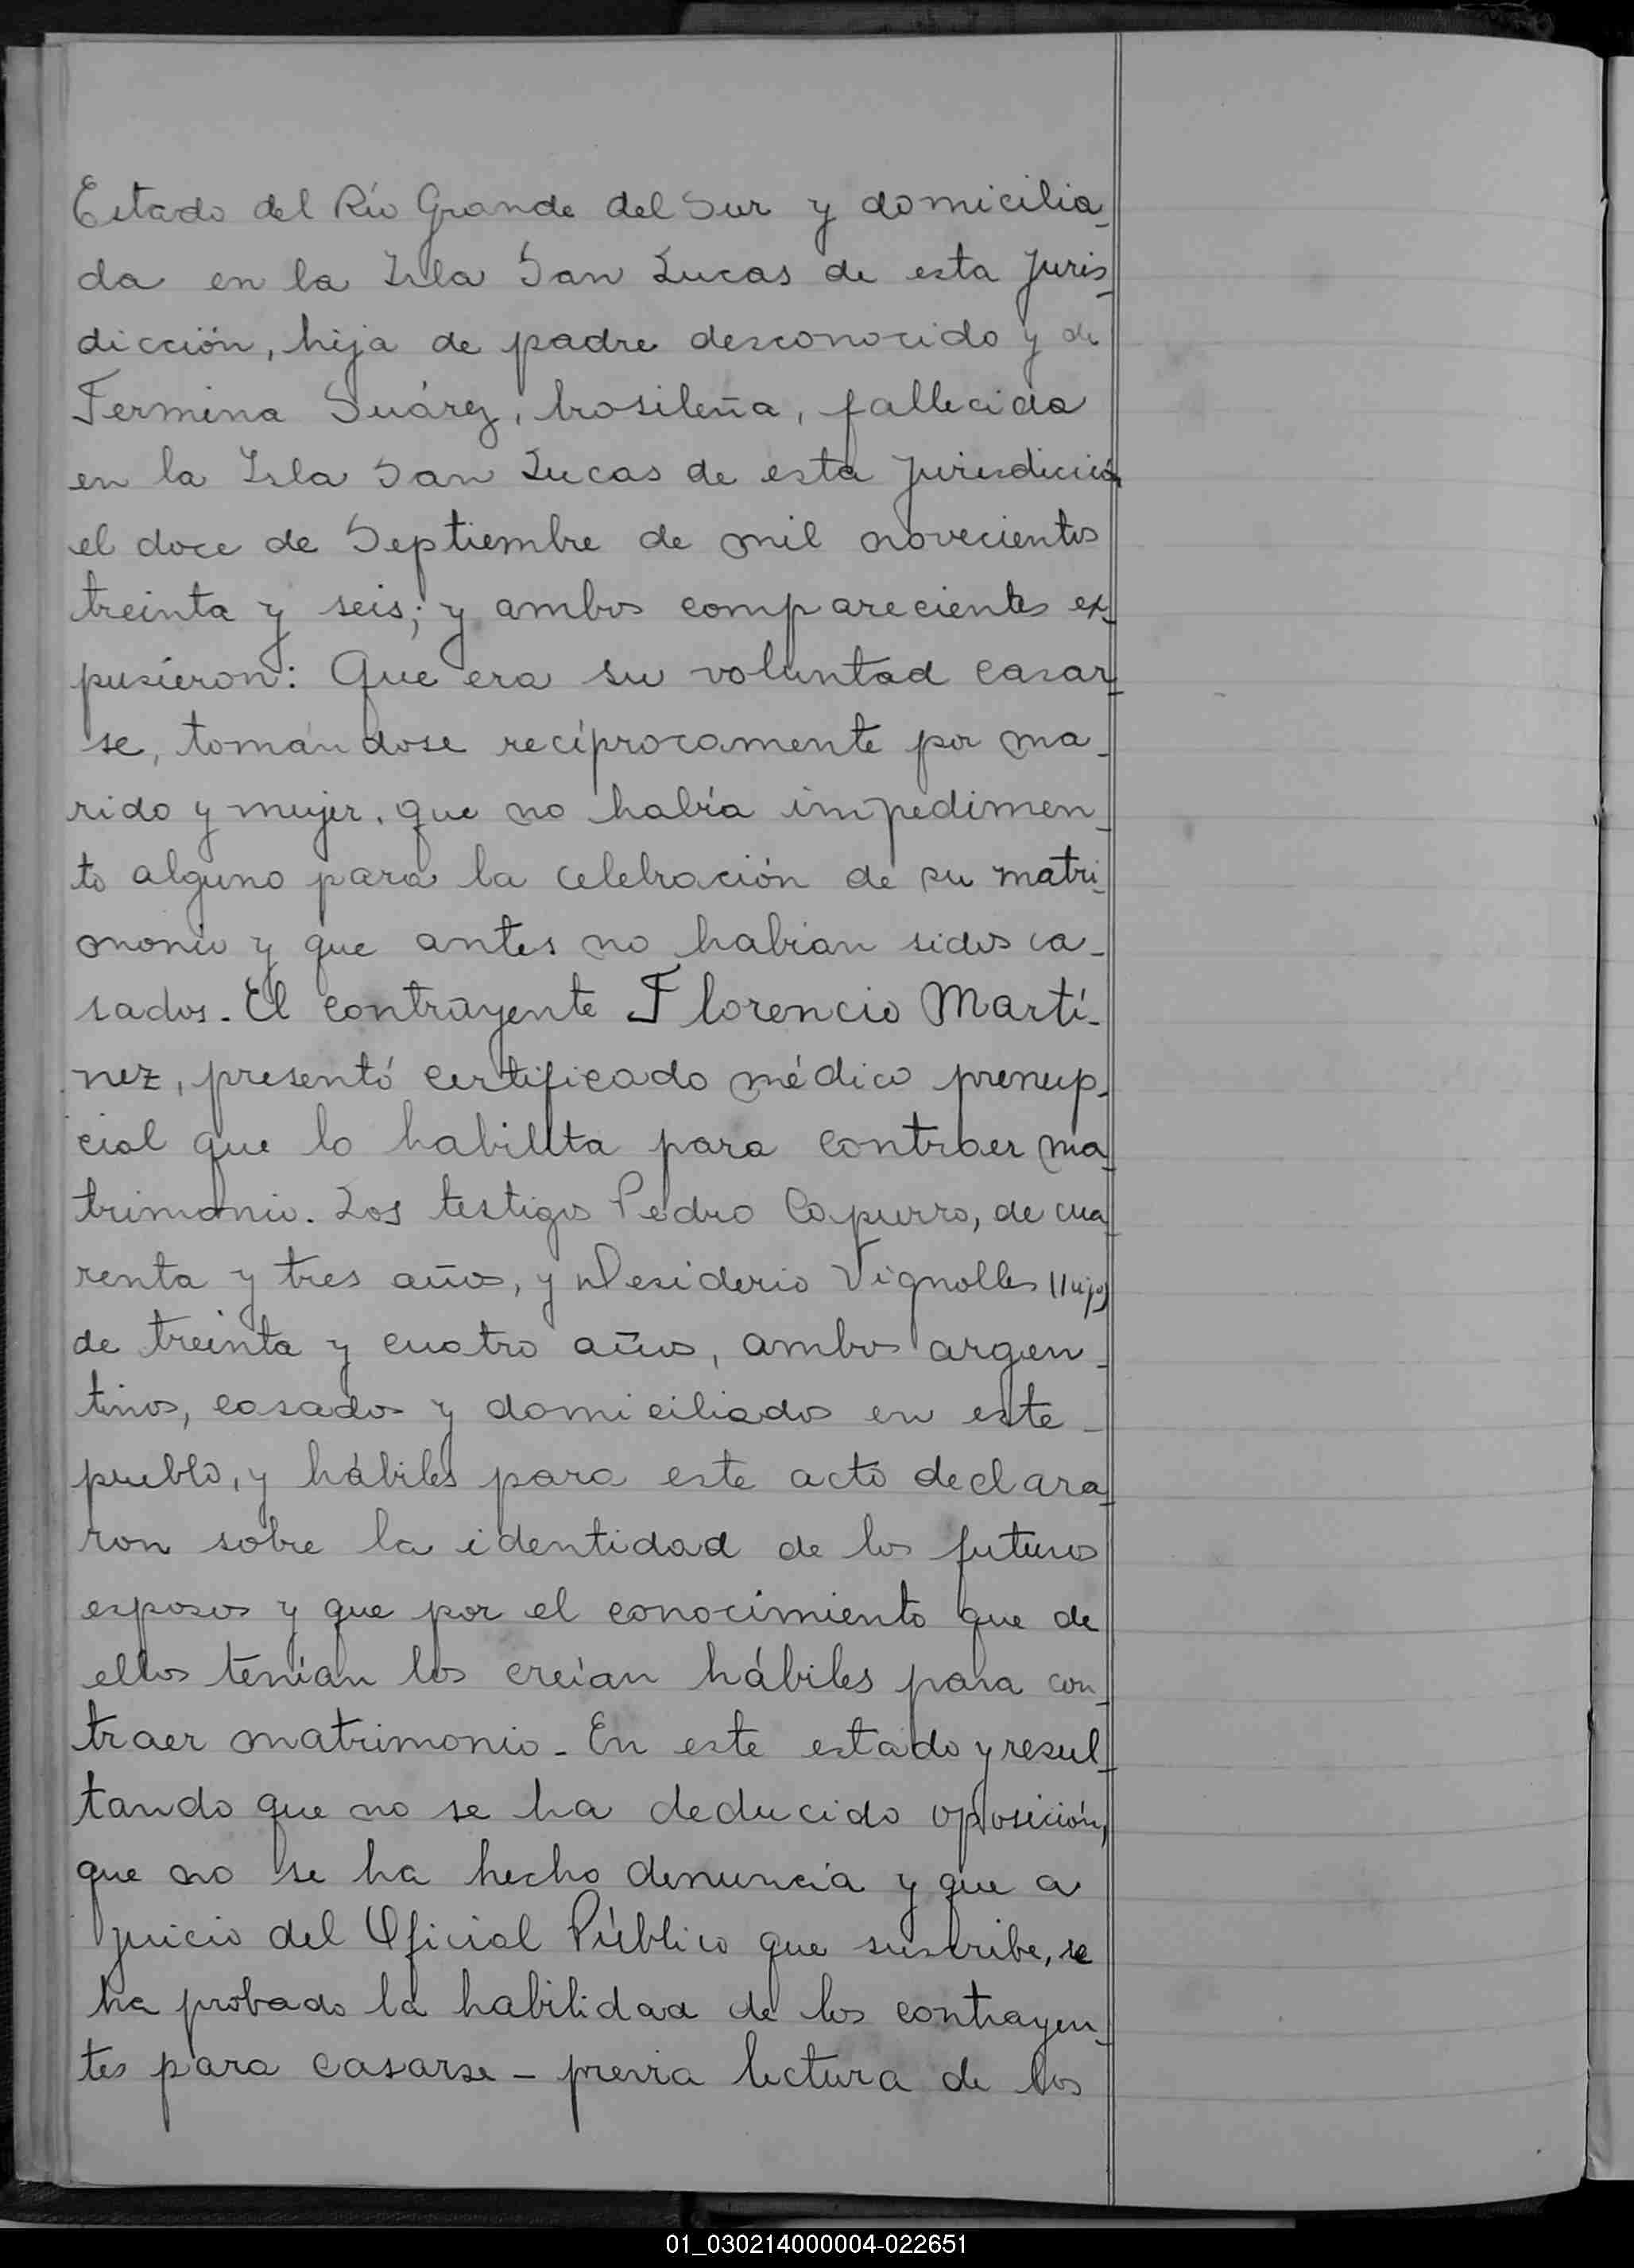 Estado del Río Grande del Sur y domicilia-
da en la Isla San Lucas de esta Juris-
dicción, hija de padre desconocido y de
Fermina Suárez, brasileña, fallecida
en la Isla San Lucas de esta Jurisdicción
el doce de Septiembre de mil novecientos
treinta y seis; y ambos comparecientes ex-
pusieron: Que era su voluntad casar-
se, tomándose recíprocamente por ma-
rido y mujer, que no había impedimen-
to alguno para la celebración de su matri-
monio y que antes no habían sidos ca-
sados. El contrayente Florencio Martí-
nez, presentó certificado médico prenup-
cial que lo habilita para contraer ma-
trimonio. Los testigos Pedro Capurro, de cua-
renta y tres años, y Desiderio Vignolles (hijo)
de treinta y cuatro años, ambos argen-
tinos, casados y domiciliados en este-
pueblo, y hábiles para este acto declara-
ron sobre la identidad de los futuros
esposos y que por el conocimiento que de
ellos tenían los creían hábiles para con-
traer matrimonio. En este estado y resul-
tando que no se ha deducido oposición,
que no se ha hecho denuncia y que a
juicio del Oficial Público que suscribe, se
ha probado la habilidad de los contrayen-
tes para casarse - previa lectura de los
01_030214000004-022651